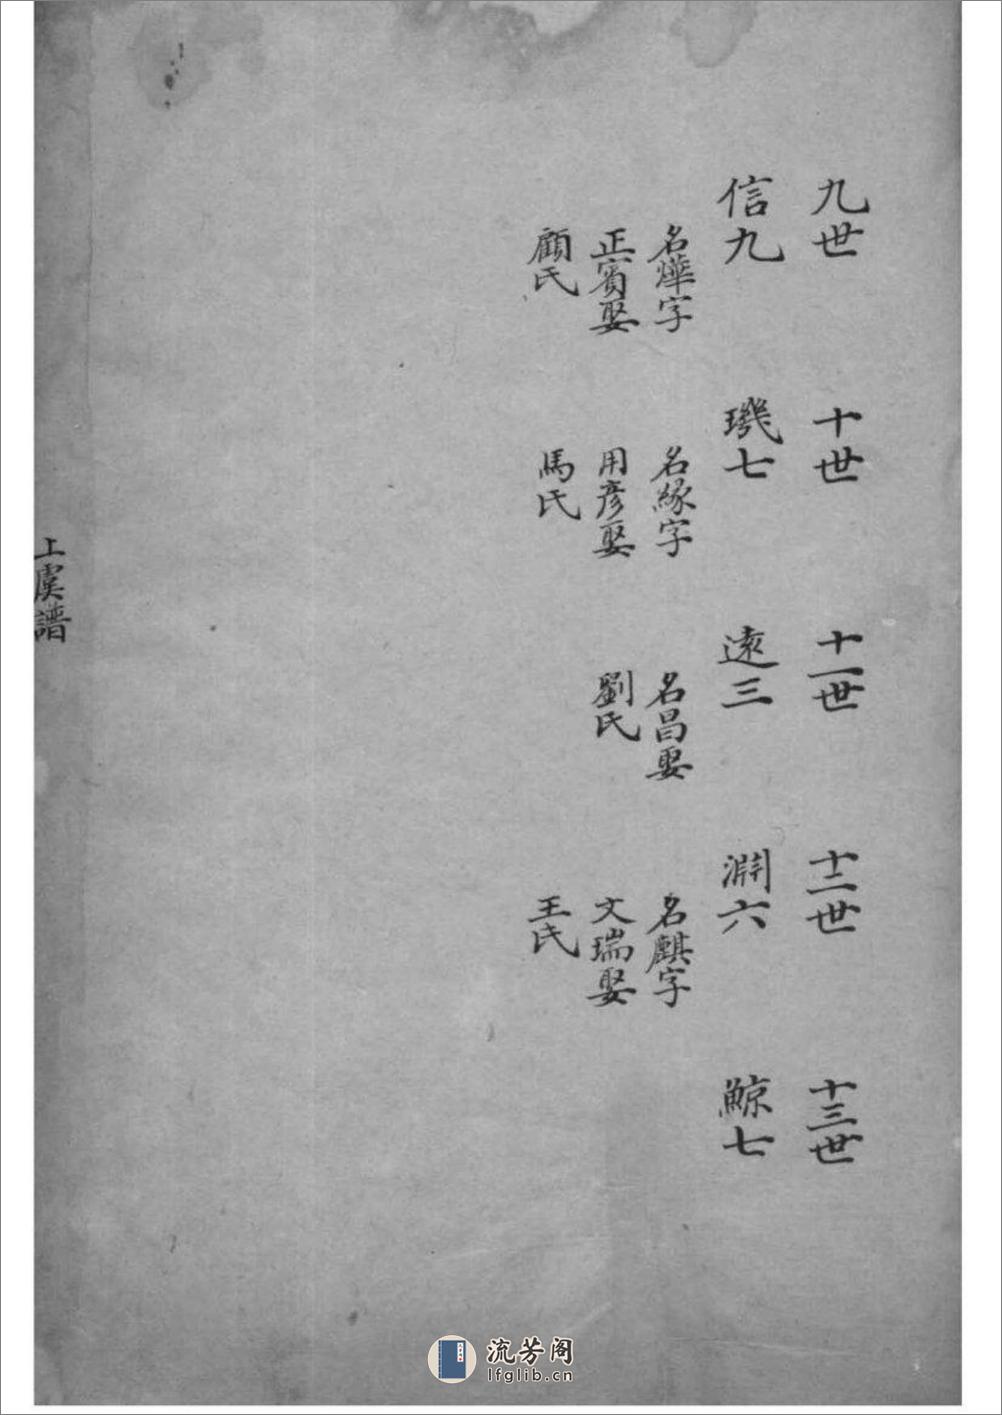 九世
信九
名燁字
正賓娶
顧氏
十世
璣七
名緣字
用彥娶
馬氏
十一世
遠三
名昌娶
劉氏
十二世
淵六
名麒字
文瑞娶
王氏
十三世
鯨七
上虞譜
流芳阁
lfglib.cn